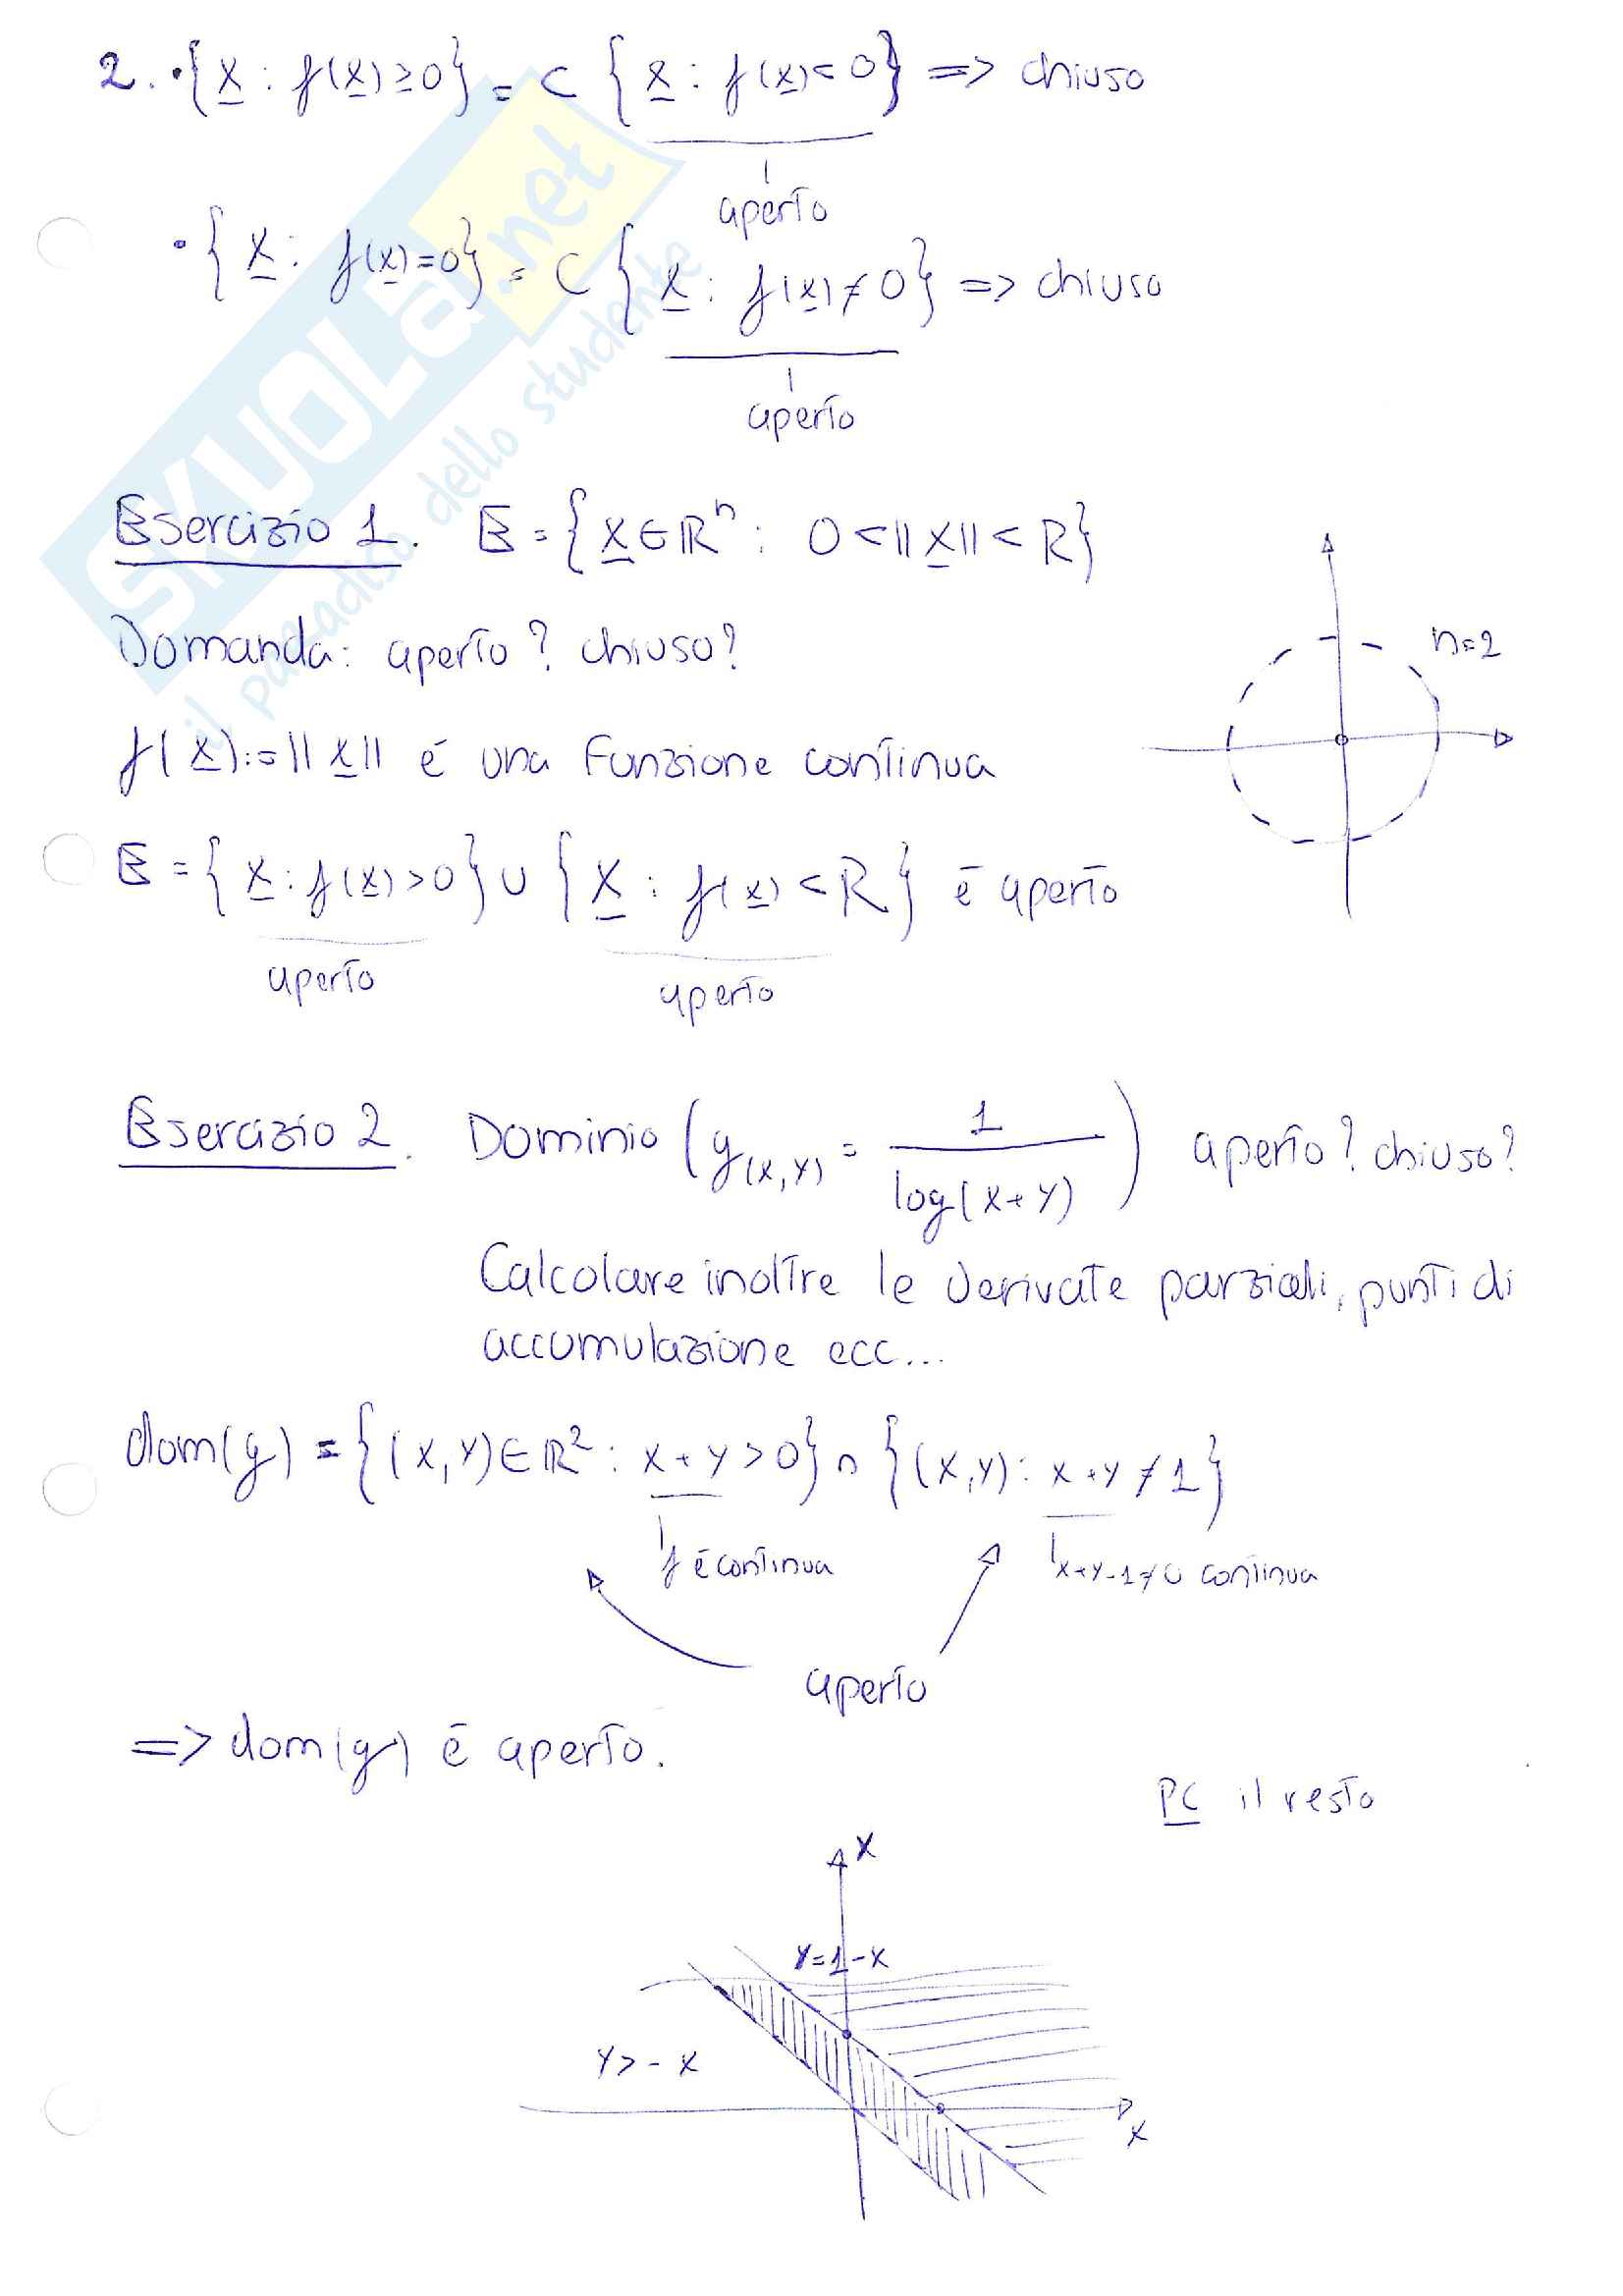 2. • {x : f(x) ≥ 0} = C {x : f(x) < 0} => chiuso
aperto
• {x : f(x) = 0} = C {x : f(x) ≠ 0} => chiuso
aperto
Esercizio 1. E = {x ∈ ℝⁿ : 0 < ||x|| < R}
Domanda: aperto? chiuso?
n=2
f(x) := ||x|| è una funzione continua
E = {x : f(x) > 0} ∪ {x : f(x) < R} è aperto
aperto aperto
Esercizio 2. Dominio (g(x,y) = 1 / log(x+y)) aperto? chiuso?
Calcolare inoltre le derivate parziali, punti di
accumulazione ecc...
dom(g) = {(x,y) ∈ ℝ² : x+y > 0} ∩ {(x,y) : x+y ≠ 1}
f è continua x+y-1≠0 continua
aperto
=> dom(g) è aperto.
PC il resto
x
y=1-x
y>-x
x
SKUOLA.net
il paradiso dello studente